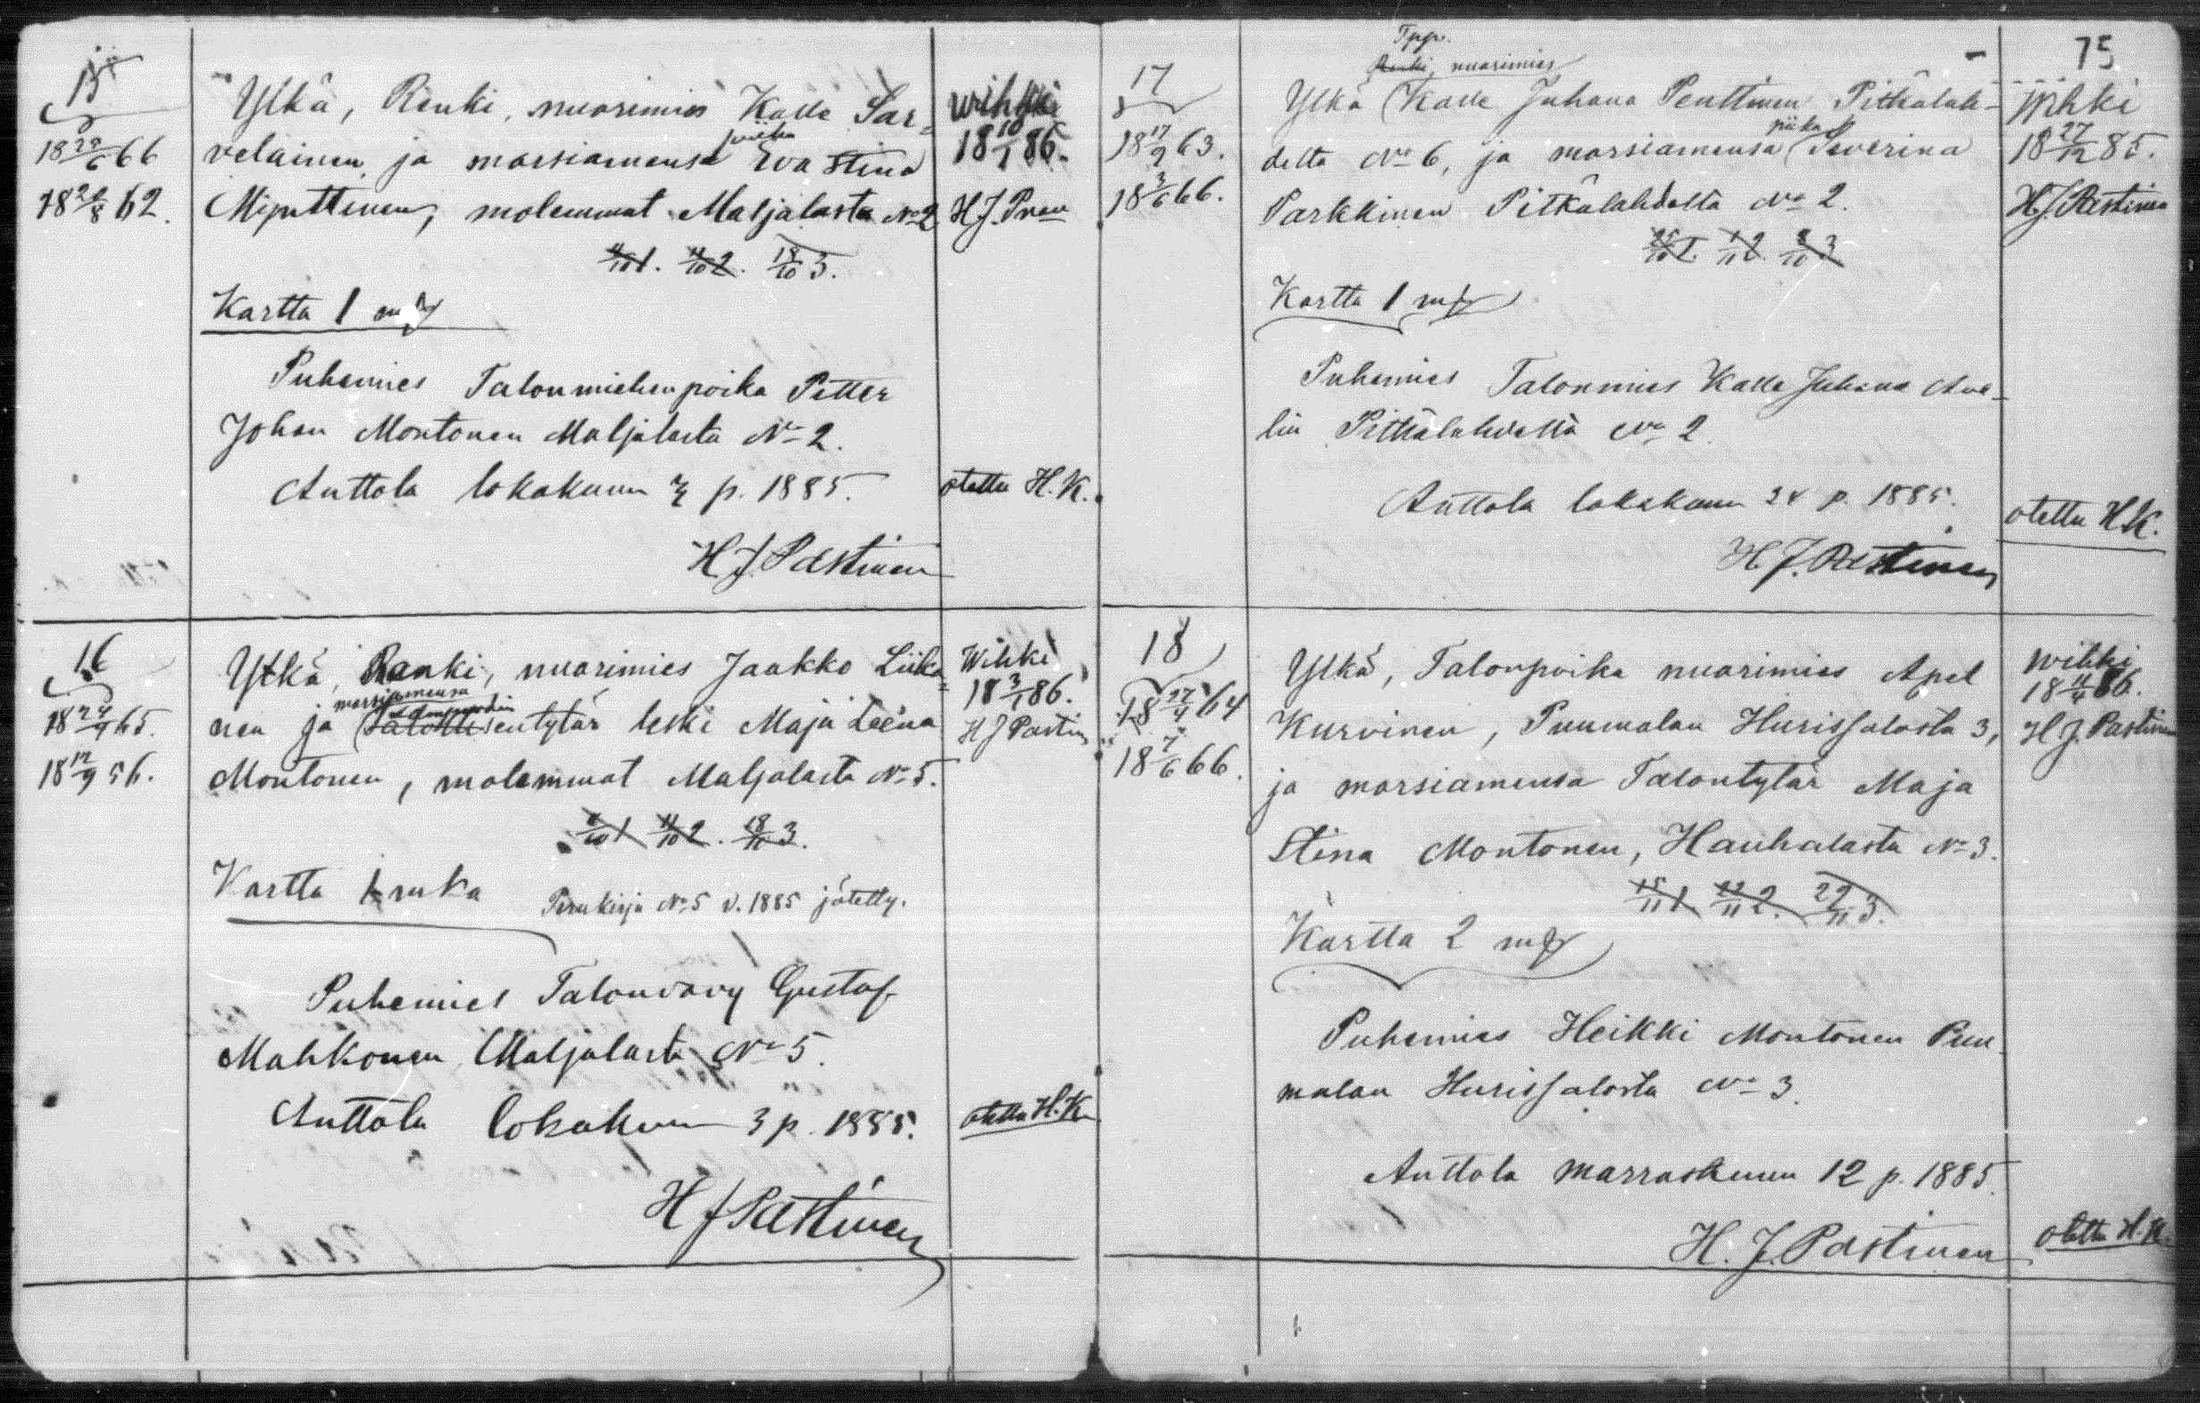 15
18 28/6 66
18 20/8 62.
Ylkä, Renki, nuorimies Kalle Sar-
velainen, ja morsiamensa piika Eva Stina
Miputtinen, molemmat Maljalasta No 2
4/10 1. 11/10 2. 18/10 3.
Kartta 1 mk
Puhemies Talonmiehenpoika Petter
Johan Montonen Maljalasta No 2.
Anttola lokakuun 2 p. 1885.
H J Pastinen
Wihki
18 10/1 86.
H J Pnen
otettu H. K.
16
18 24/4 65.
18 12/9 56.
Ylkä, Renki, nuorimies Jaakko Liika-
morsiamensa
nen ja tytär leski Maja Leena
Montonen, molemmat Maljalasta No 5.
4/10 1 11/10 2. 18/10 3.
Kartta 1 mka
Perukirja No 5 v. 1885 jätetty.
Puhemies Talonvävy Gustaf
Mahkonen, Maljalasta No 5.
Anttola lokakuun 3 p. 1885.
H J Pastinen
Wihki
18 3/1 86.
H J Pastin
otettu H. K
75
17
18 17/9 63.
18 3/6 66.
Tpp.
Renki, nuorimies
Ylkä Kalle Juhana Penttinen Pitkälah-
delta No 6, ja morsiamensa piika Severina
Parkkinen Pitkälahdelta No 2.
25/10 1. 1/11 2. 8/10 3
Kartta 1 mk
Puhemies Talonmies Kalle Juhana Ava-
lin Pitkälahdelta No 2
Anttola lokakuun 24 p. 1885.
H J. Pastinen
Wihki
18 27/12 85.
H. J. Pastinen
otettu H.K.
18
18 27/4 64
18 7/6 66.
Ylkä, Talonpoika nuorimies Apel
Kurvinen, Puumalan Hurissalosta 3,
ja morsiamensa Talontytär Maja
Stina Montonen, Hauhalasta No 3.
15/11 1 22/11 2. 29/11 3.
Kartta 2 mk
Puhemies Heikki Montonen Puu-
malan Hurissalosta No 3.
Anttola marraskuun 12 p. 1885.
H. J. Pastinen
wihki
18 11/4 86.
H J. Pastinen
otettu H. K.